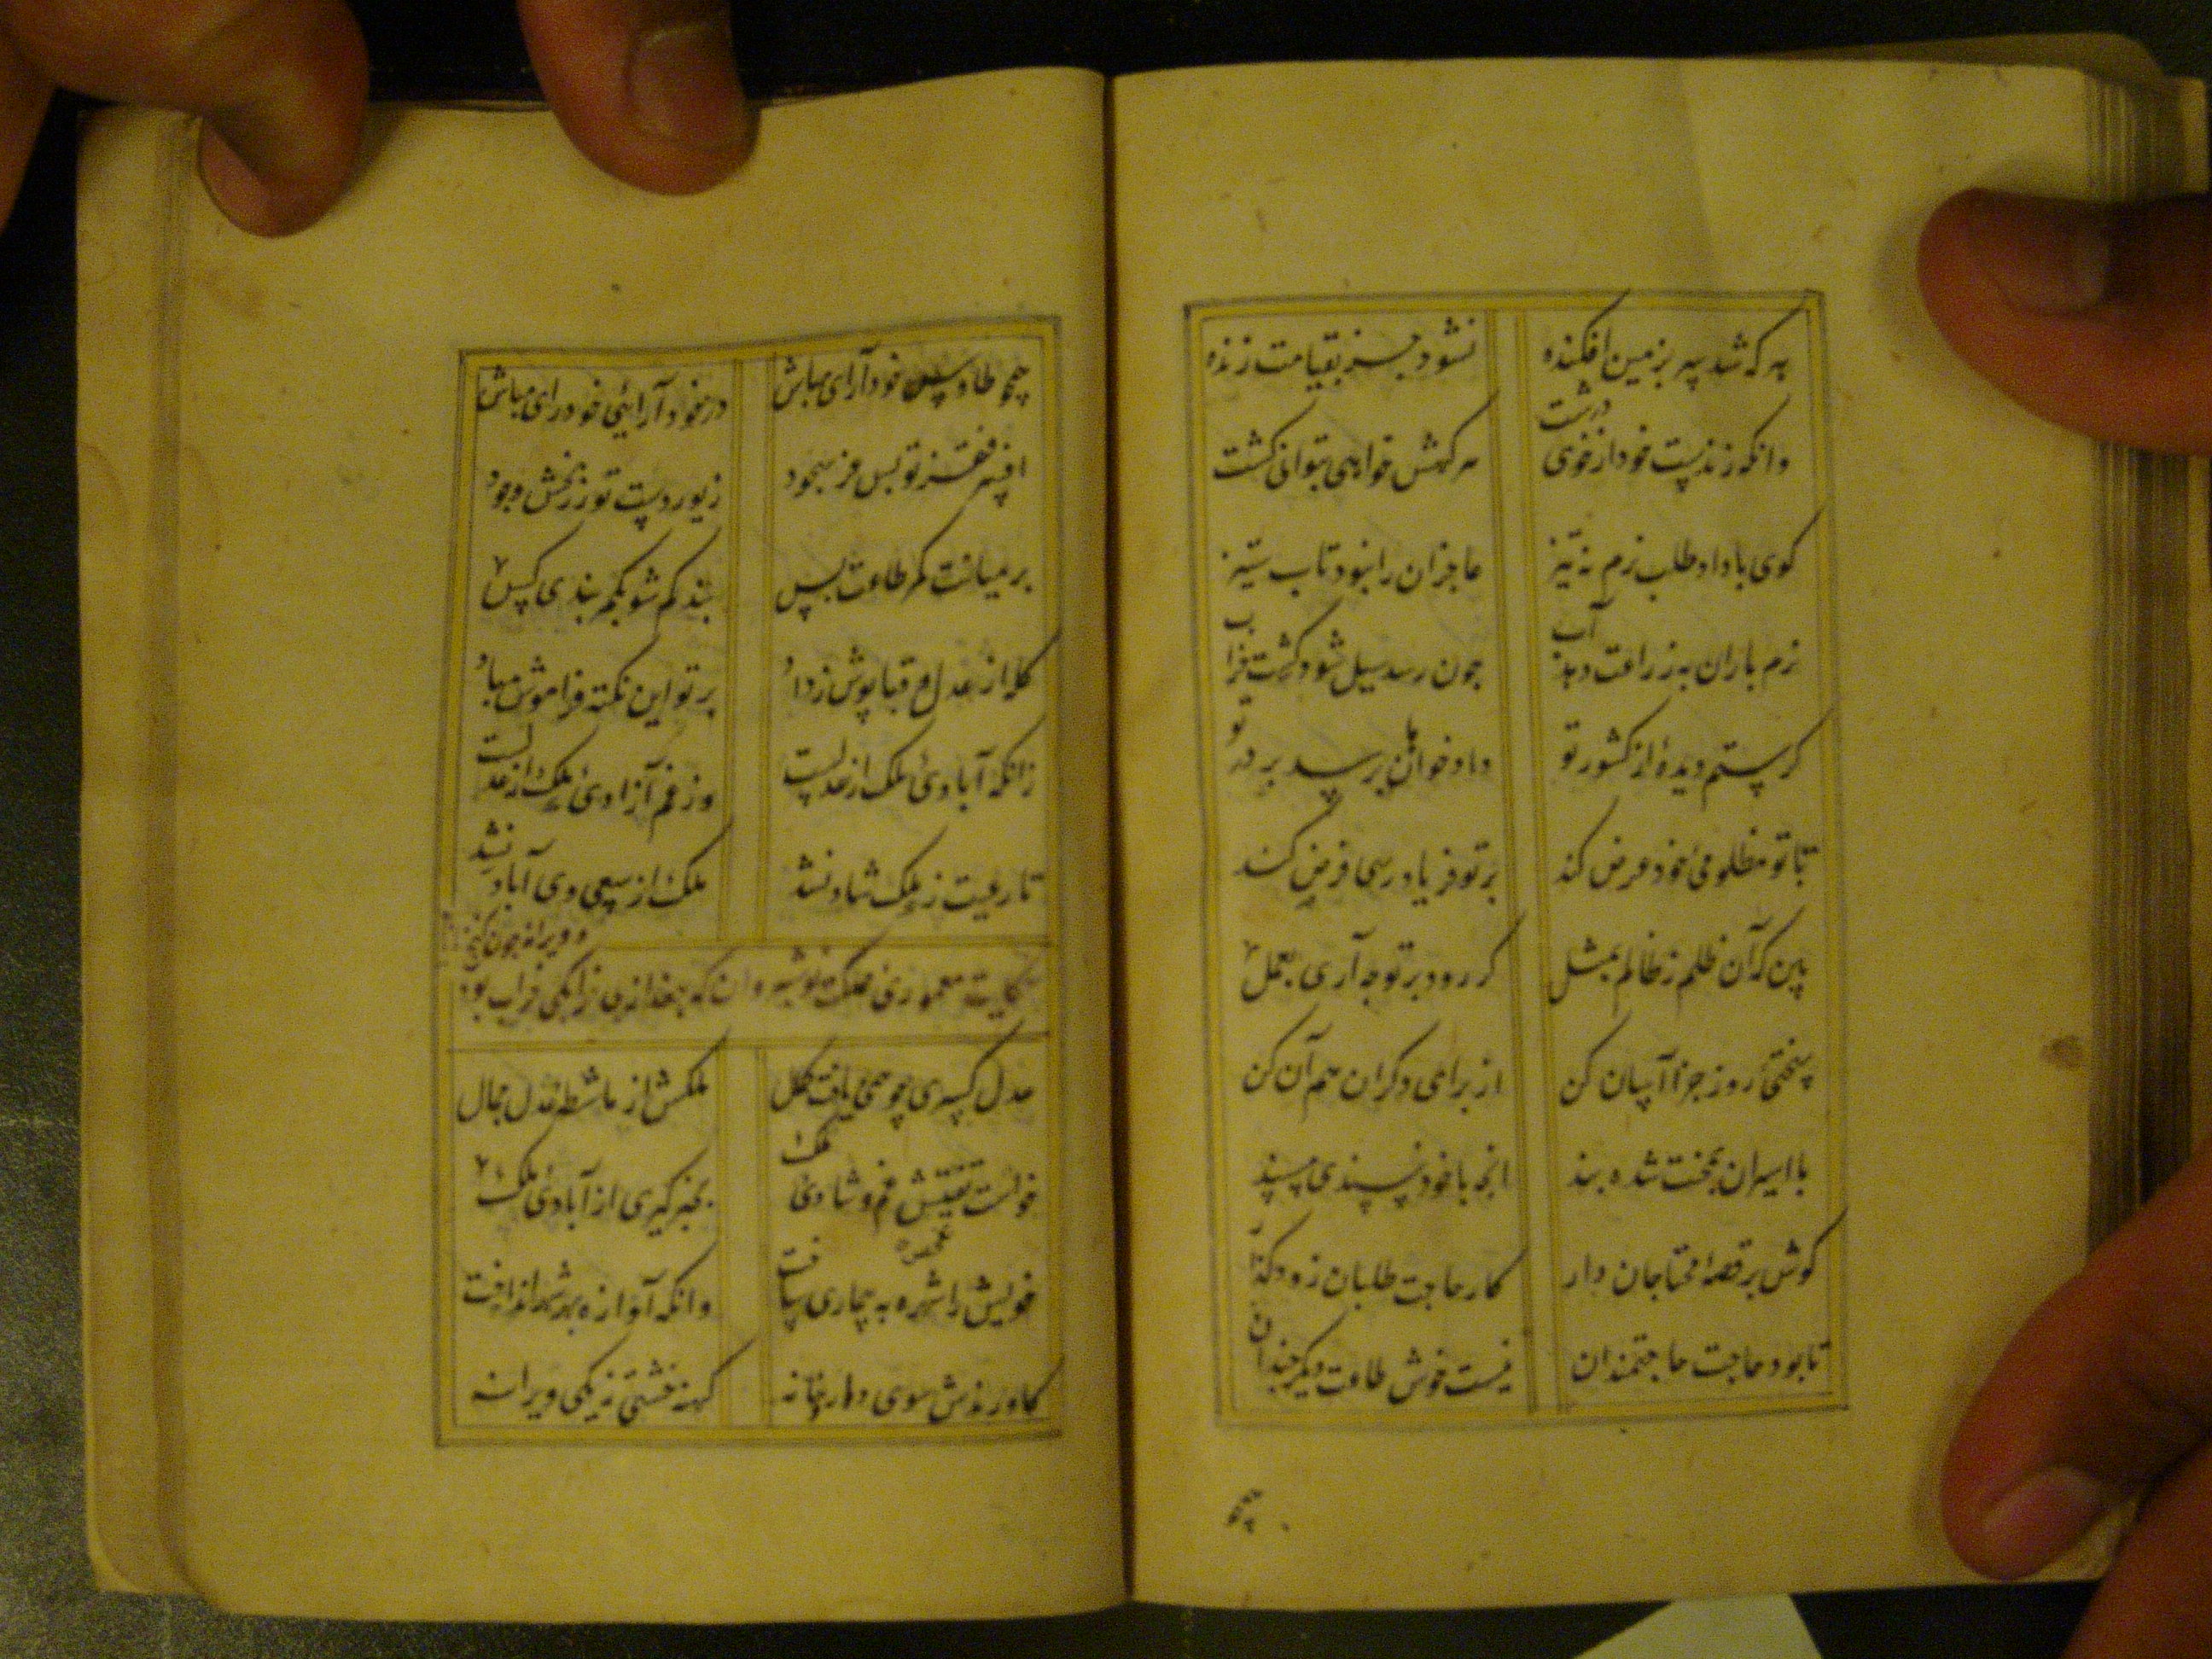 به که شد سر بزمین افکنده نشود جز بقیامت زنده
وانکه زندیست خود از خوی درشت هر گهش خواهی بتوانی کشت
کوی با داد طلب نرم نه تیز عاجزان را نبود تاب ستیز
نرم باران به زراعت دهد آب چون رسد سیل شود کشت خراب
کر ستم دیده از کشور تو داد خواهان برسد بر در تو
تا بتو مظلومی خود عرض کند بر تو فریاد رسی فرض کند
بین که آن ظلم ز ظالم بمثل کر رود بر تو چه آری بعمل
سختی روز جزا آسان کن از برای دکران هم آن کن
با اسیران بمحنت شده بند انچه با خود نپسندی مپسند
کوش بر قصه محتاجان دار کار حاجت طلبان زود کذار
تا بود حاجت حاجتمندان نیست خوش طاعت دیکر چندان
همچو
همچو طاوس خودآرای مباش در خود آرایی خودرای مباش
افسر فقر تو بس فر سجود زیور دست تو زربخش وجود
بر میانت کمر طاعت بس بند کم شو بکمربندی کس
کله از عدل و قبا پوش ز داد بر تو این نکته فراموش مباد
زانکه آبادی ملک از عدلست وز غم آزادی ملک از عدلست
تا رعیت ز ملک شاد نشد ملک از سعی وی آباد نشد
حکایت معموری ملک نوشیروان که بعد از وی خراب بود و ویرانه چون کنج
عدل کسری چو یافت کمال ملکش از ماشطه عدل جمال
خواست تفتیش غم و شادی ملک خبر کیری از آبادی ملک
خویش را شهره به بیماری ساخت وانکه آوازه بهر شهر انداخت
کاورندش سوی دارخانه کهنه خشتی ز یکی ویرانه